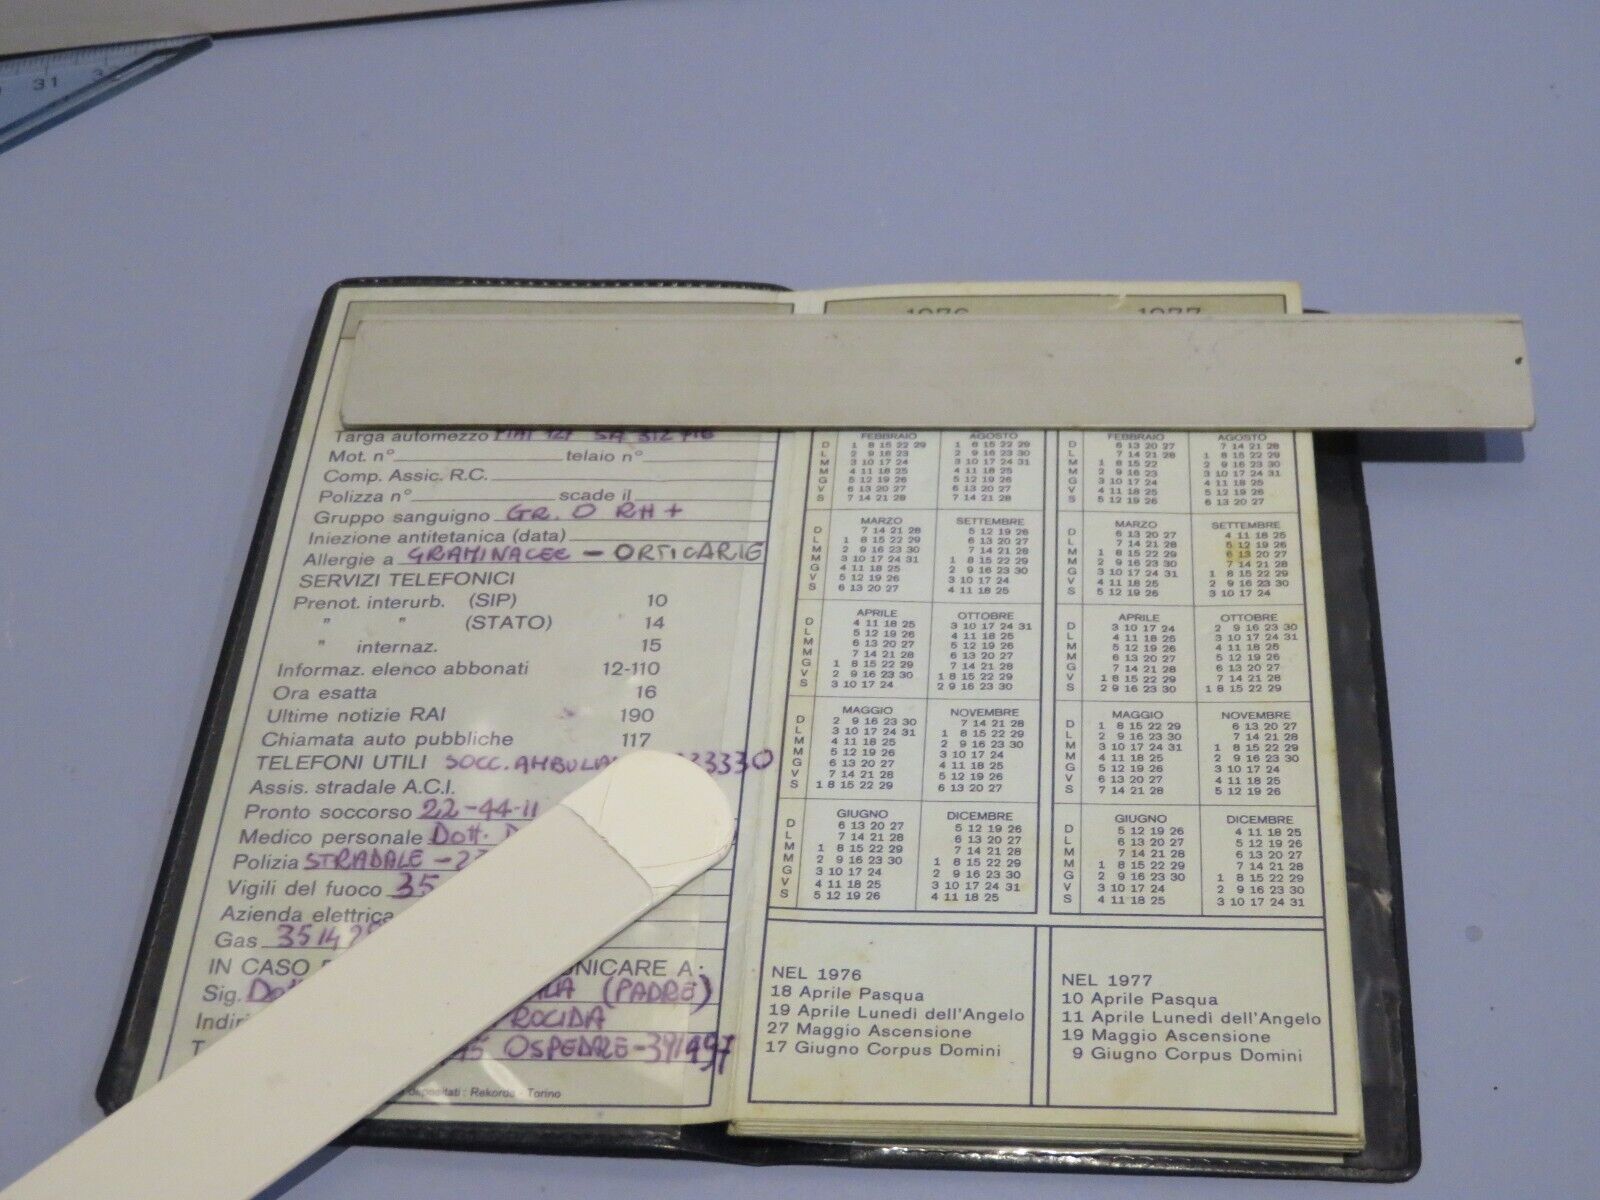 31
1976 1977
Targa automezzo FIAT 127 SA 312716
Mot. n° telaio n°
Comp. Assic. R.C.
Polizza n° scade il
Gruppo sanguigno GR. O RH +
Iniezione antitetanica (data)
Allergie a GRAMINACEE – ORTICARIE
SERVIZI TELEFONICI
Prenot. interurb. (SIP) 10
" " (STATO) 14
" internaz. 15
Informaz. elenco abbonati 12-110
Ora esatta 16
Ultime notizie RAI 190
Chiamata auto pubbliche 117
TELEFONI UTILI SOCC. AMBULAN 33330
Assis. stradale A.C.I.
Pronto soccorso 22-44-11
Medico personale Dott.
Polizia STRADALE – 
Vigili del fuoco 35
Azienda elettrica
Gas 3514
IN CASO NICARE A:
Sig. (PADRE)
Indiri ROCIDA
OSPEDALE – 391997
depositati: Rekords - Torino
FEBBRAIO
D 1 8 15 22 29
L 2 9 16 23
M 3 10 17 24
M 4 11 18 25
G 5 12 19 26
V 6 13 20 27
S 7 14 21 28
AGOSTO
1 8 15 22 29
2 9 16 23 30
3 10 17 24 31
4 11 18 25
5 12 19 26
6 13 20 27
7 14 21 28
MARZO
D 7 14 21 28
L 1 8 15 22 29
M 2 9 16 23 30
M 3 10 17 24 31
G 4 11 18 25
V 5 12 19 26
S 6 13 20 27
SETTEMBRE
5 12 19 26
6 13 20 27
7 14 21 28
1 8 15 22 29
2 9 16 23 30
3 10 17 24
4 11 18 25
APRILE
D 4 11 18 25
L 5 12 19 26
M 6 13 20 27
M 7 14 21 28
G 1 8 15 22 29
V 2 9 16 23 30
S 3 10 17 24
OTTOBRE
3 10 17 24 31
4 11 18 25
5 12 19 26
6 13 20 27
7 14 21 28
1 8 15 22 29
2 9 16 23 30
MAGGIO
D 2 9 16 23 30
L 3 10 17 24 31
M 4 11 18 25
M 5 12 19 26
G 6 13 20 27
V 7 14 21 28
S 1 8 15 22 29
NOVEMBRE
7 14 21 28
1 8 15 22 29
2 9 16 23 30
3 10 17 24
4 11 18 25
5 12 19 26
6 13 20 27
GIUGNO
D 6 13 20 27
L 7 14 21 28
M 1 8 15 22 29
M 2 9 16 23 30
G 3 10 17 24
V 4 11 18 25
S 5 12 19 26
DICEMBRE
5 12 19 26
6 13 20 27
7 14 21 28
1 8 15 22 29
2 9 16 23 30
3 10 17 24 31
4 11 18 25
FEBBRAIO
D 6 13 20 27
L 7 14 21 28
M 1 8 15 22
M 2 9 16 23
G 3 10 17 24
V 4 11 18 25
S 5 12 19 26
AGOSTO
7 14 21 28
1 8 15 22 29
2 9 16 23 30
3 10 17 24 31
4 11 18 25
5 12 19 26
6 13 20 27
MARZO
D 6 13 20 27
L 7 14 21 28
M 1 8 15 22 29
M 2 9 16 23 30
G 3 10 17 24 31
V 4 11 18 25
S 5 12 19 26
SETTEMBRE
4 11 18 25
5 12 19 26
6 13 20 27
7 14 21 28
1 8 15 22 29
2 9 16 23 30
3 10 17 24
APRILE
D 3 10 17 24
L 4 11 18 25
M 5 12 19 26
M 6 13 20 27
G 7 14 21 28
V 1 8 15 22 29
S 2 9 16 23 30
OTTOBRE
2 9 16 23 30
3 10 17 24 31
4 11 18 25
5 12 19 26
6 13 20 27
7 14 21 28
1 8 15 22 29
MAGGIO
D 1 8 15 22 29
L 2 9 16 23 30
M 3 10 17 24 31
M 4 11 18 25
G 5 12 19 26
V 6 13 20 27
S 7 14 21 28
NOVEMBRE
6 13 20 27
7 14 21 28
1 8 15 22 29
2 9 16 23 30
3 10 17 24
4 11 18 25
5 12 19 26
GIUGNO
D 5 12 19 26
L 6 13 20 27
M 7 14 21 28
M 1 8 15 22 29
G 2 9 16 23 30
V 3 10 17 24
S 4 11 18 25
DICEMBRE
4 11 18 25
5 12 19 26
6 13 20 27
7 14 21 28
1 8 15 22 29
2 9 16 23 30
3 10 17 24 31
NEL 1976
18 Aprile Pasqua
19 Aprile Lunedi dell'Angelo
27 Maggio Ascensione
17 Giugno Corpus Domini
NEL 1977
10 Aprile Pasqua
11 Aprile Lunedi dell'Angelo
19 Maggio Ascensione
9 Giugno Corpus Domini